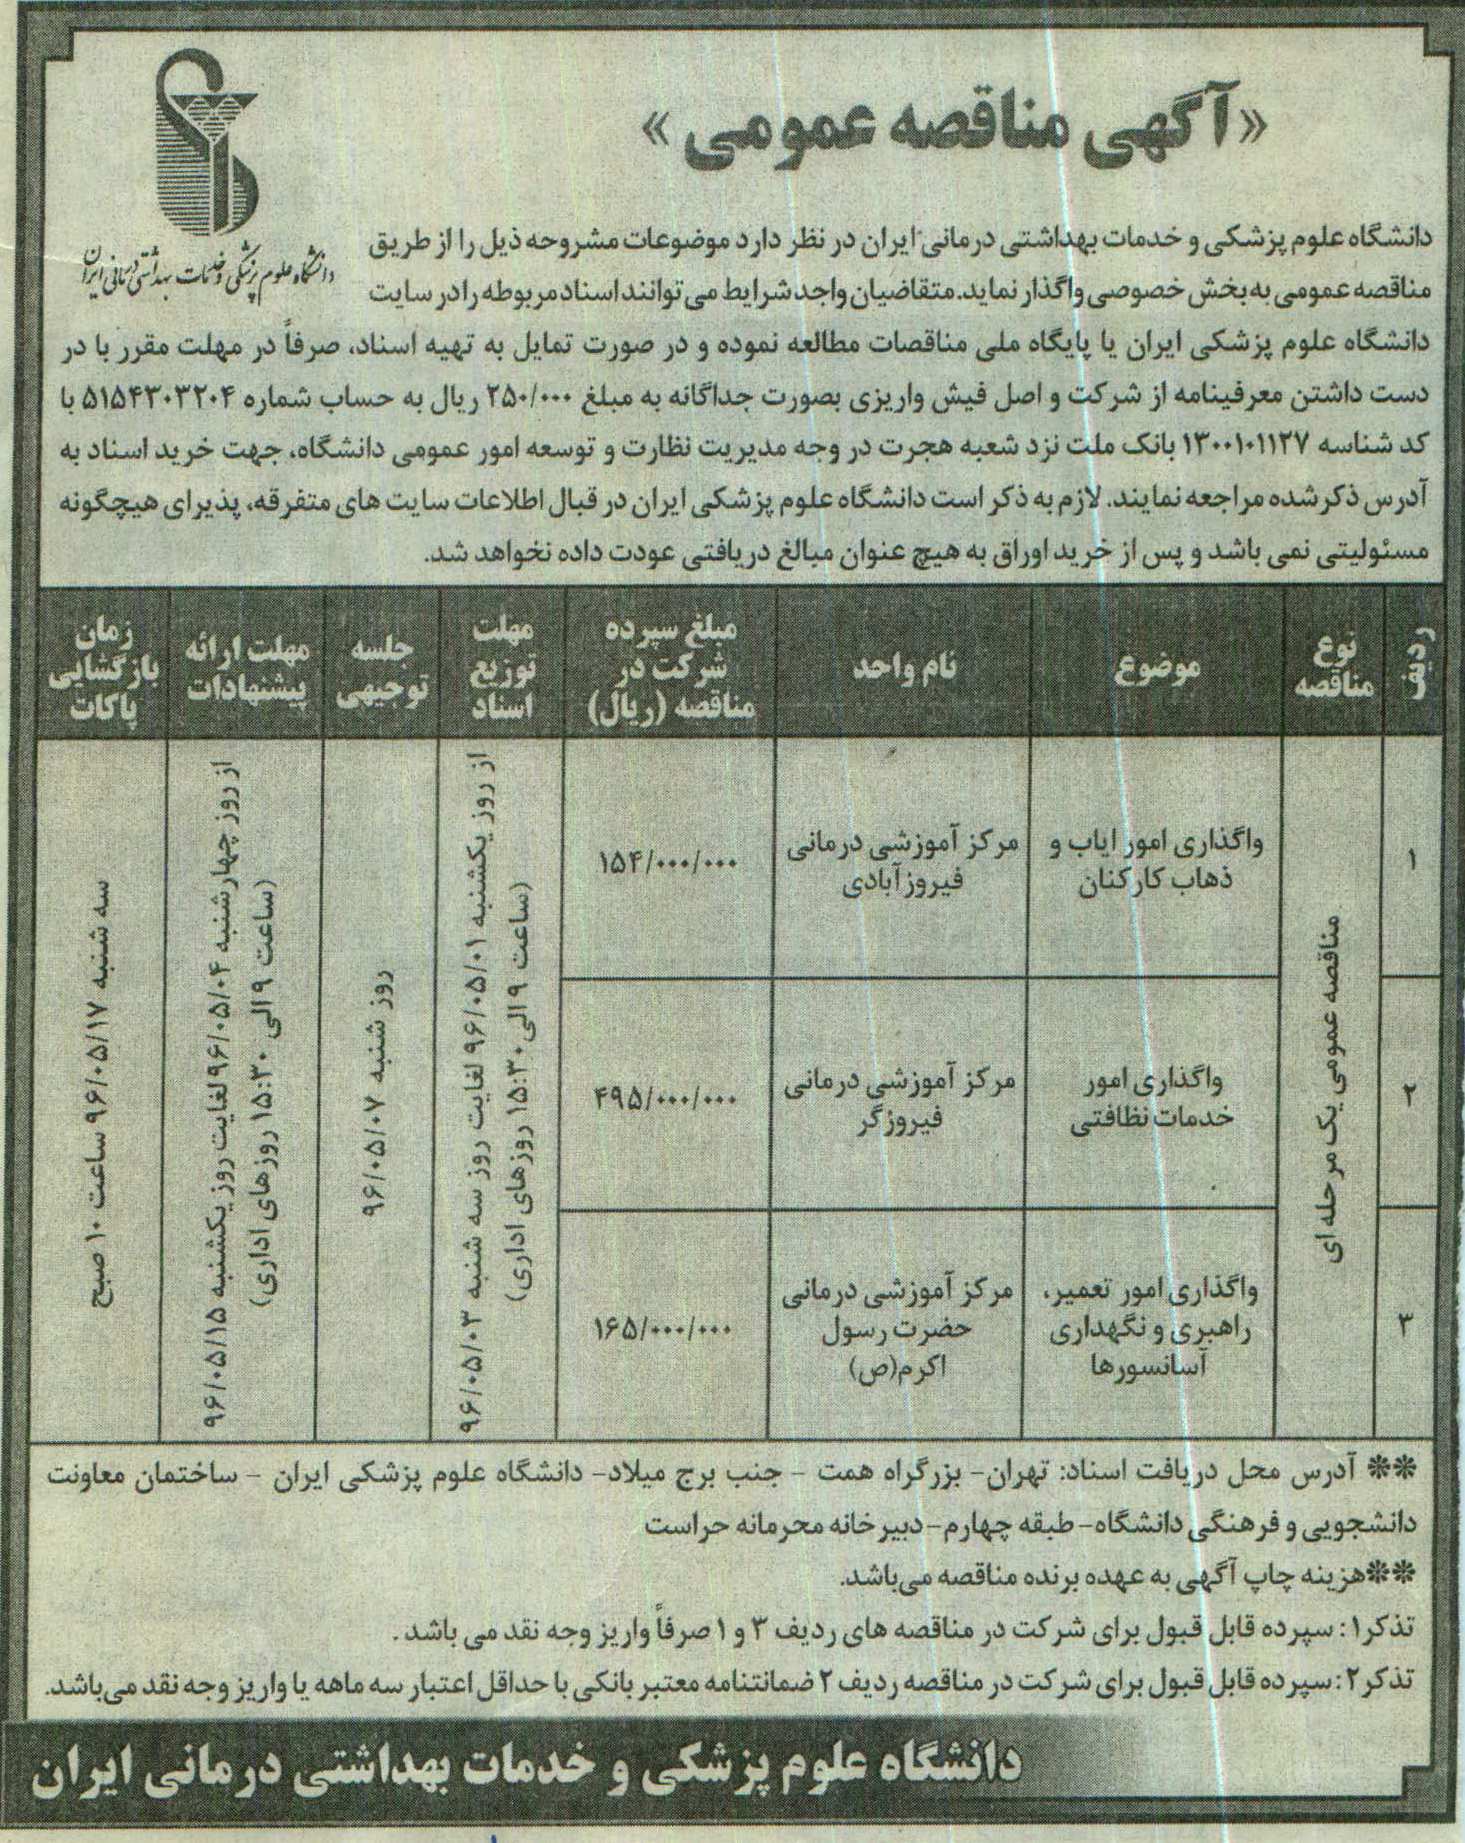 «آگهی مناقصه عمومی»
دانشگاه علوم پزشکی و خدمات بهداشتی درمانی ایران
دانشگاه علوم پزشکی و خدمات بهداشتی درمانی ایران در نظر دارد موضوعات مشروحه ذیل را از طریق
مناقصه عمومی به بخش خصوصی واگذار نماید. متقاضیان واجد شرایط می توانند اسناد مربوطه را در سایت
دانشگاه علوم پزشکی ایران یا پایگاه ملی مناقصات مطالعه نموده و در صورت تمایل به تهیه اسناد، صرفاً در مهلت مقرر با در
دست داشتن معرفینامه از شرکت و اصل فیش واریزی بصورت جداگانه به مبلغ ۲۵۰/۰۰۰ ریال به حساب شماره ۵۱۵۴۳۰۳۲۰۴ با
کد شناسه ۱۳۰۰۱۰۱۱۲۷ بانک ملت نزد شعبه هجرت در وجه مدیریت نظارت و توسعه امور عمومی دانشگاه، جهت خرید اسناد به
آدرس ذکر شده مراجعه نمایند. لازم به ذکر است دانشگاه علوم پزشکی ایران در قبال اطلاعات سایت های متفرقه، پذیرای هیچگونه
مسئولیتی نمی باشد و پس از خرید اوراق به هیچ عنوان مبالغ دریافتی عودت داده نخواهد شد.
ردیف
نوع
مناقصه
موضوع
نام واحد
مبلغ سپرده
شرکت در
مناقصه (ریال)
مهلت
توزیع
اسناد
جلسه
توجیهی
مهلت ارائه
پیشنهادات
زمان
بازگشایی
پاکات
۱
مناقصه عمومی یک مرحله ای
واگذاری امور ایاب و
ذهاب کارکنان
مرکز آموزشی درمانی
فیروزآبادی
۱۵۴/۰۰۰/۰۰۰
از روز یکشنبه ۹۶/۰۵/۰۱ لغایت روز سه شنبه ۹۶/۰۵/۰۳
(ساعت ۹ الی ۱۵:۳۰ روزهای اداری)
روز شنبه ۹۶/۰۵/۰۷
از روز چهارشنبه ۹۶/۰۵/۰۴ لغایت روز یکشنبه ۹۶/۰۵/۱۵
(ساعت ۹ الی ۱۵:۳۰ روزهای اداری)
سه شنبه ۹۶/۰۵/۱۷ ساعت ۱۰ صبح
۲
واگذاری امور
خدمات نظافتی
مرکز آموزشی درمانی
فیروزگر
۴۹۵/۰۰۰/۰۰۰
۳
واگذاری امور تعمیر،
راهبری و نگهداری
آسانسورها
مرکز آموزشی درمانی
حضرت رسول
اکرم(ص)
۱۶۵/۰۰۰/۰۰۰
** آدرس محل دریافت اسناد: تهران- بزرگراه همت - جنب برج میلاد- دانشگاه علوم پزشکی ایران - ساختمان معاونت
دانشجویی و فرهنگی دانشگاه- طبقه چهارم- دبیرخانه محرمانه حراست
**هزینه چاپ آگهی به عهده برنده مناقصه می‌باشد.
تذکر۱: سپرده قابل قبول برای شرکت در مناقصه های ردیف ۳ و ۱ صرفاً واریز وجه نقد می باشد.
تذکر۲: سپرده قابل قبول برای شرکت در مناقصه ردیف ۲ ضمانتنامه معتبر بانکی با حداقل اعتبار سه ماهه یا واریز وجه نقد می‌باشد.
دانشگاه علوم پزشکی و خدمات بهداشتی درمانی ایران